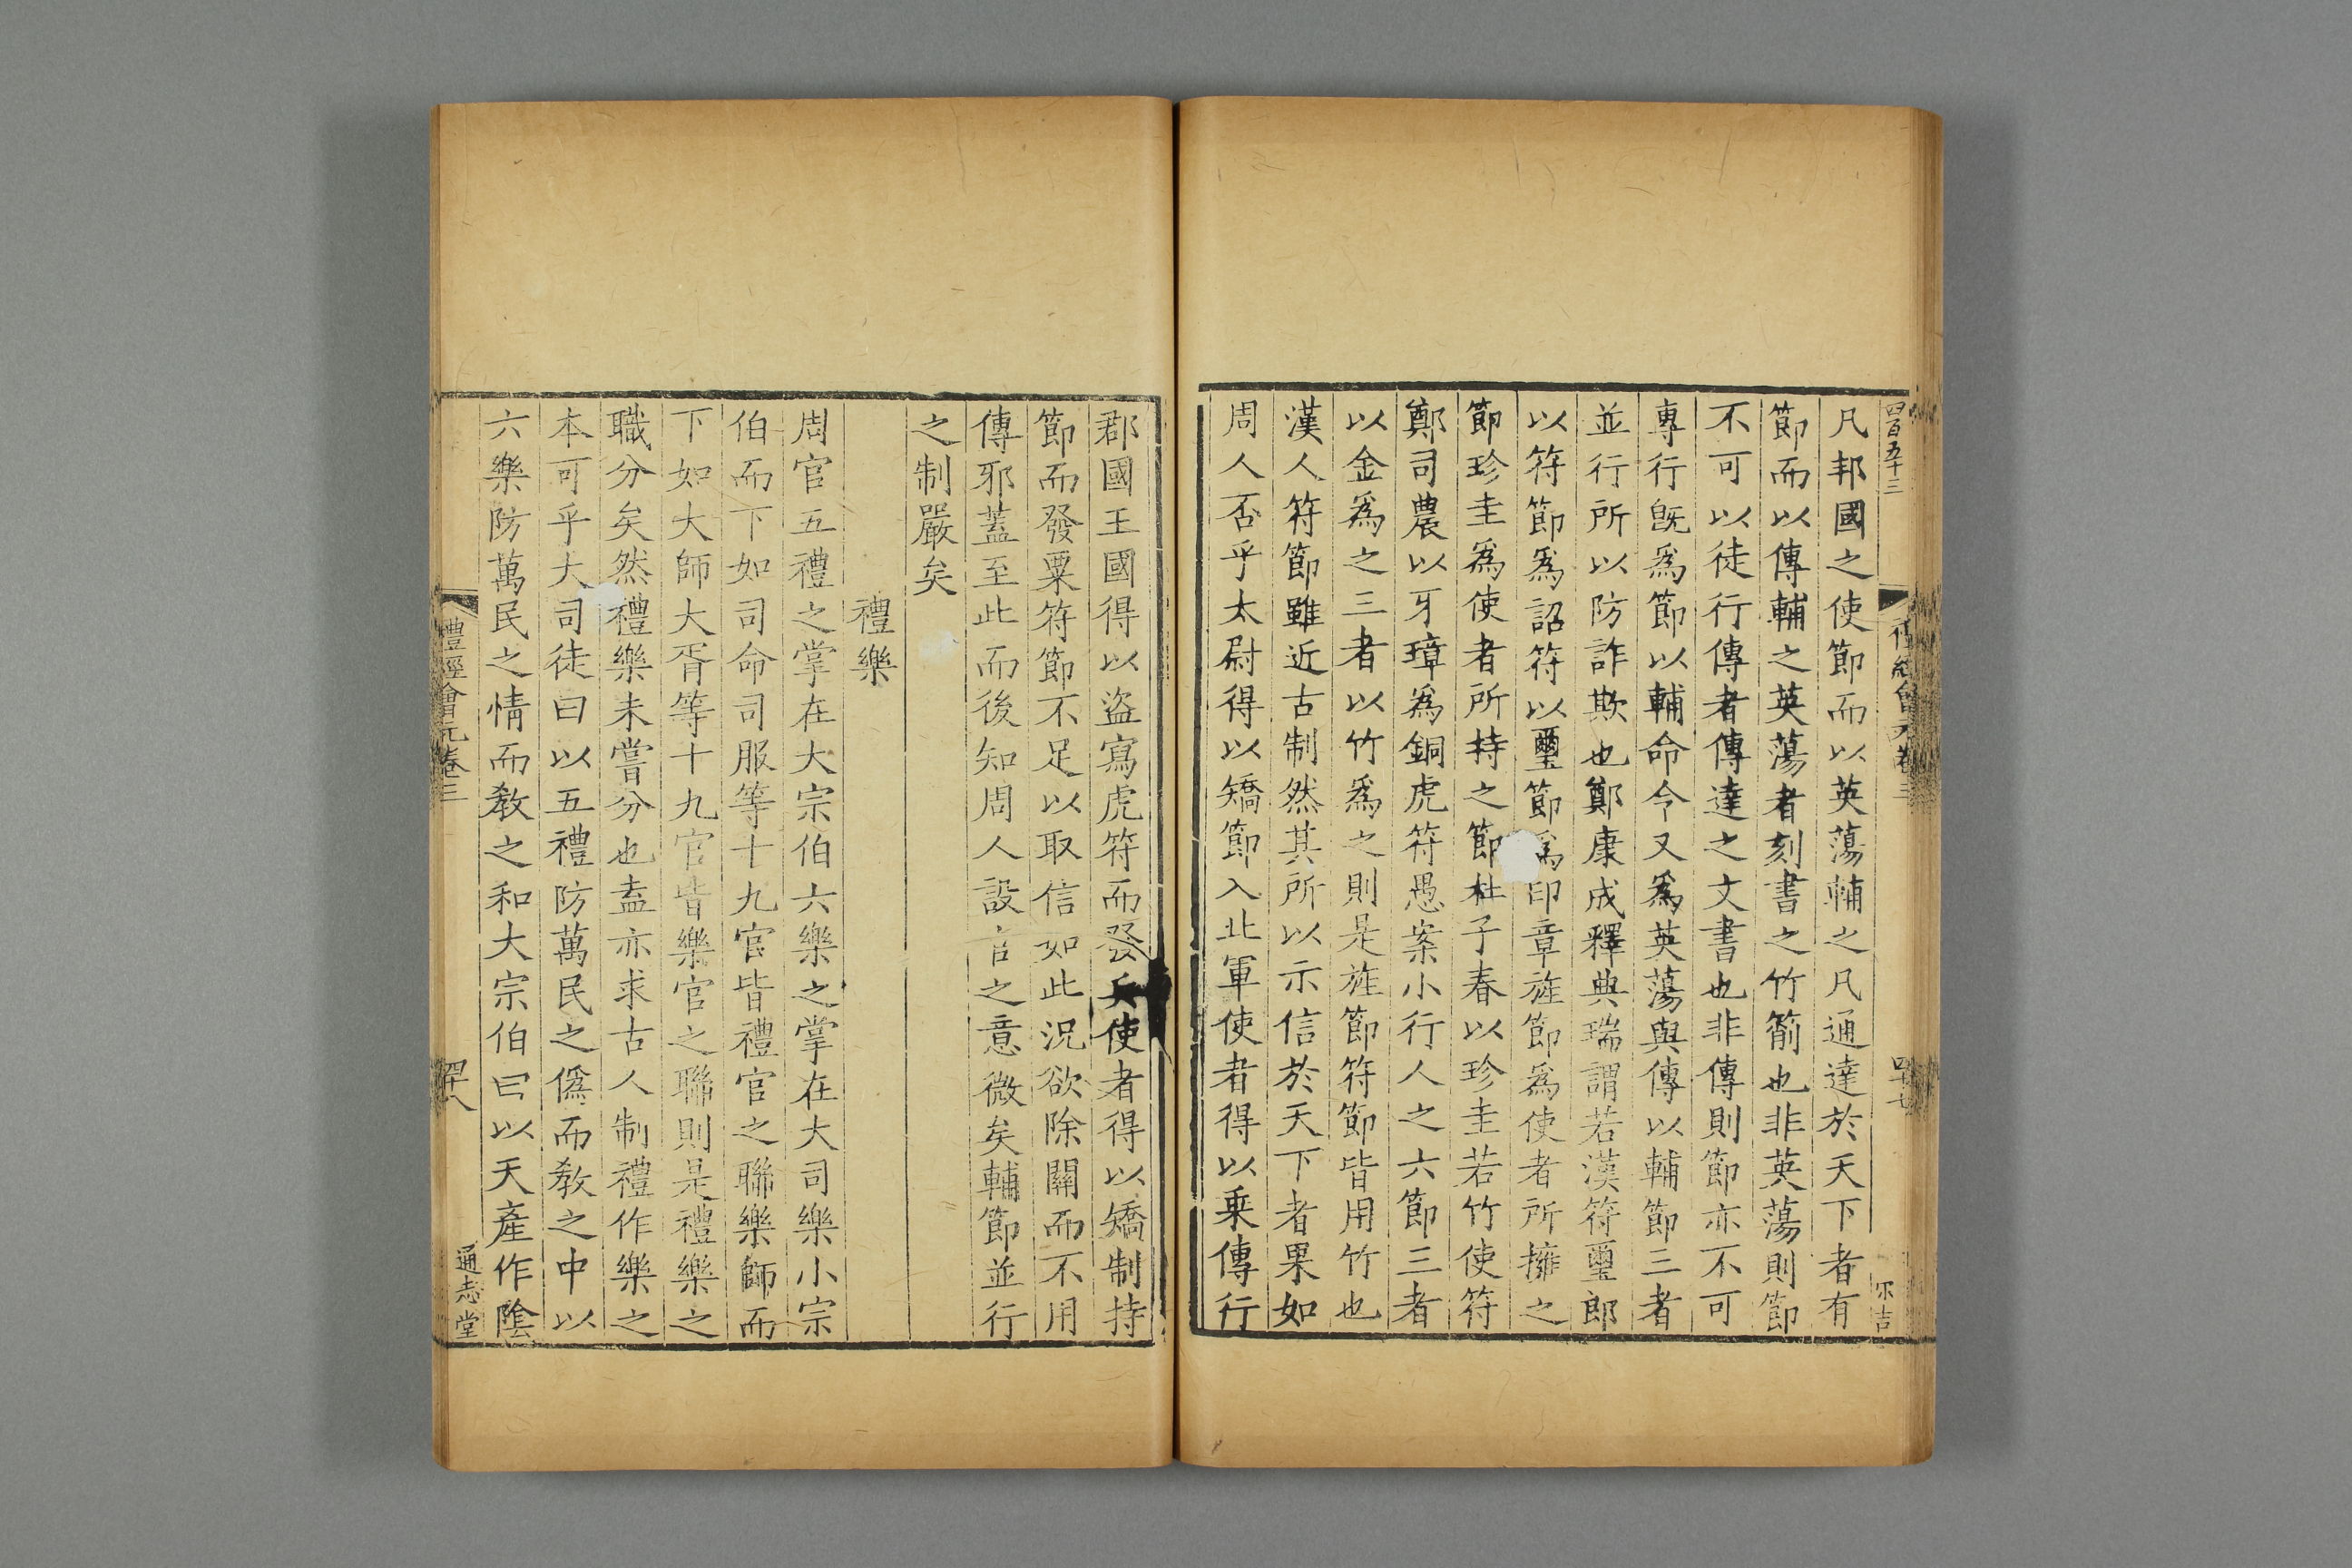 四百五十三
禮經會元卷三
四十七
凡邦國之使節而以英蕩輔之凡通達於天下者有
節而以傳輔之英蕩者刻書之竹箭也非英蕩則節
不可以徒行傳者傳達之文書也非傳則節亦不可
專行旣爲節以輔命令又爲英蕩與傳以輔節三者
並行所以防詐欺也鄭康成釋典瑞謂若漢符璽郎
以符節爲詔符以璽節爲印章旌節爲使者所擁之
節珍圭爲使者所持之節杜子春以珍圭若竹使符
鄭司農以牙璋爲銅虎符愚案小行人之六節三者
以金爲之三者以竹爲之則是旌節符節皆用竹也
漢人符節雖近古制然其所以示信於天下者果如
周人否乎太尉得以矯節入北軍使者得以乗傳行
郡國王國得以盜寫虎符而發兵使者得以矯制持
節而發粟符節不足以取信如此況欲除關而不用
傳邪蓋至此而後知周人設官之意微矣輔節並行
之制嚴矣
禮樂
周官五禮之掌在大宗伯六樂之掌在大司樂小宗
伯而下如司命司服等十九官皆禮官之聯樂師而
下如大師大胥等十九官皆樂官之聯則是禮樂之
職分矣然禮樂未嘗分也盍亦求古人制禮作樂之
本可乎大司徒曰以五禮防萬民之僞而教之中以
六樂防萬民之情而教之和大宗伯曰以天產作陰
禮經會元卷三
四十八
通志堂